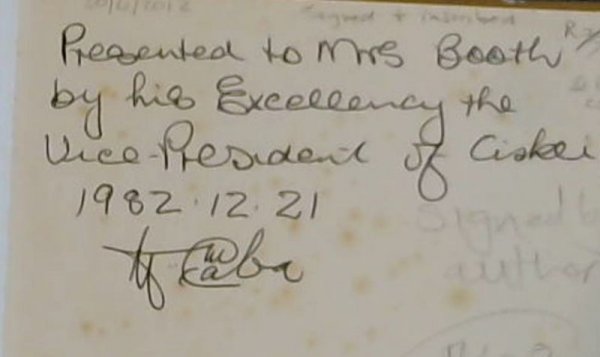 20/6/2012 Signed + inscribed
Presented to Mrs Booth
by his Excellency the
Vice-President of Ciskei
1982.12.21
Signed b
author